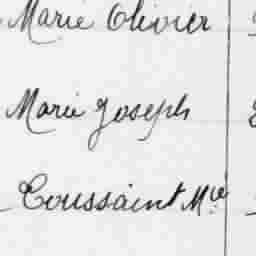 Marie Olivier
Marie Joseph
Toussaint M.ie